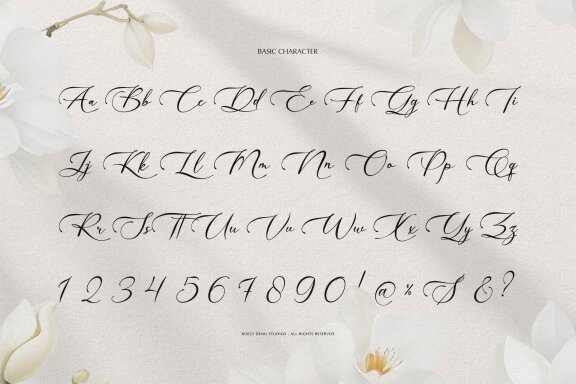 BASIC CHARACTER
Aa Bb Cc Dd Ee Ff Gg Hh Ii
Jj Kk Ll Mm Nn Oo Pp Qq
Rr Ss Tt Uu Vv Ww Xx Yy Zz
1 2 3 4 5 6 7 8 9 0 ! @ % $ & ?
©2022 DENU STUDIOS - ALL RIGHTS RESERVED